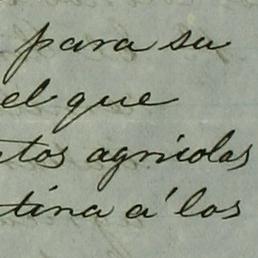 para su
el que
tos agricolas
tina a' los